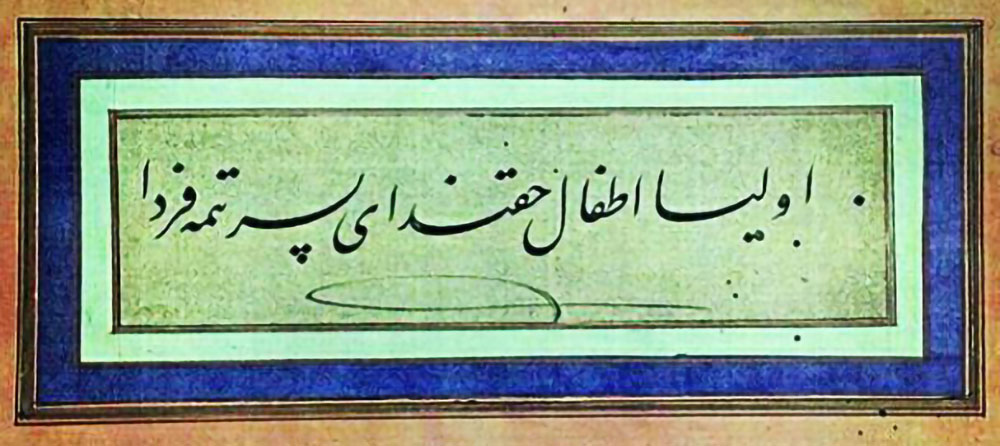 اولیا اطفال حقند ای پسر تتمه فردا